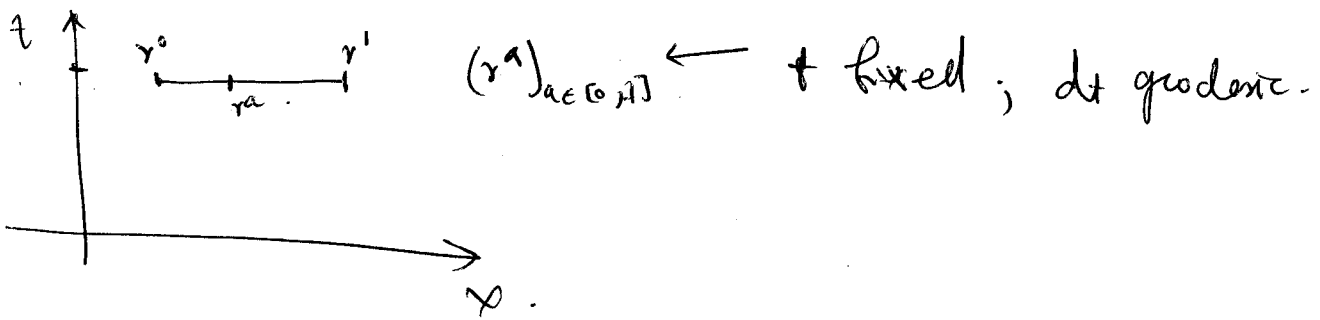 t
γ⁰ γ¹ (γᵃ)ₐ∈[0,1] ← t fixed ; dt geodesic.
γᵃ
X .